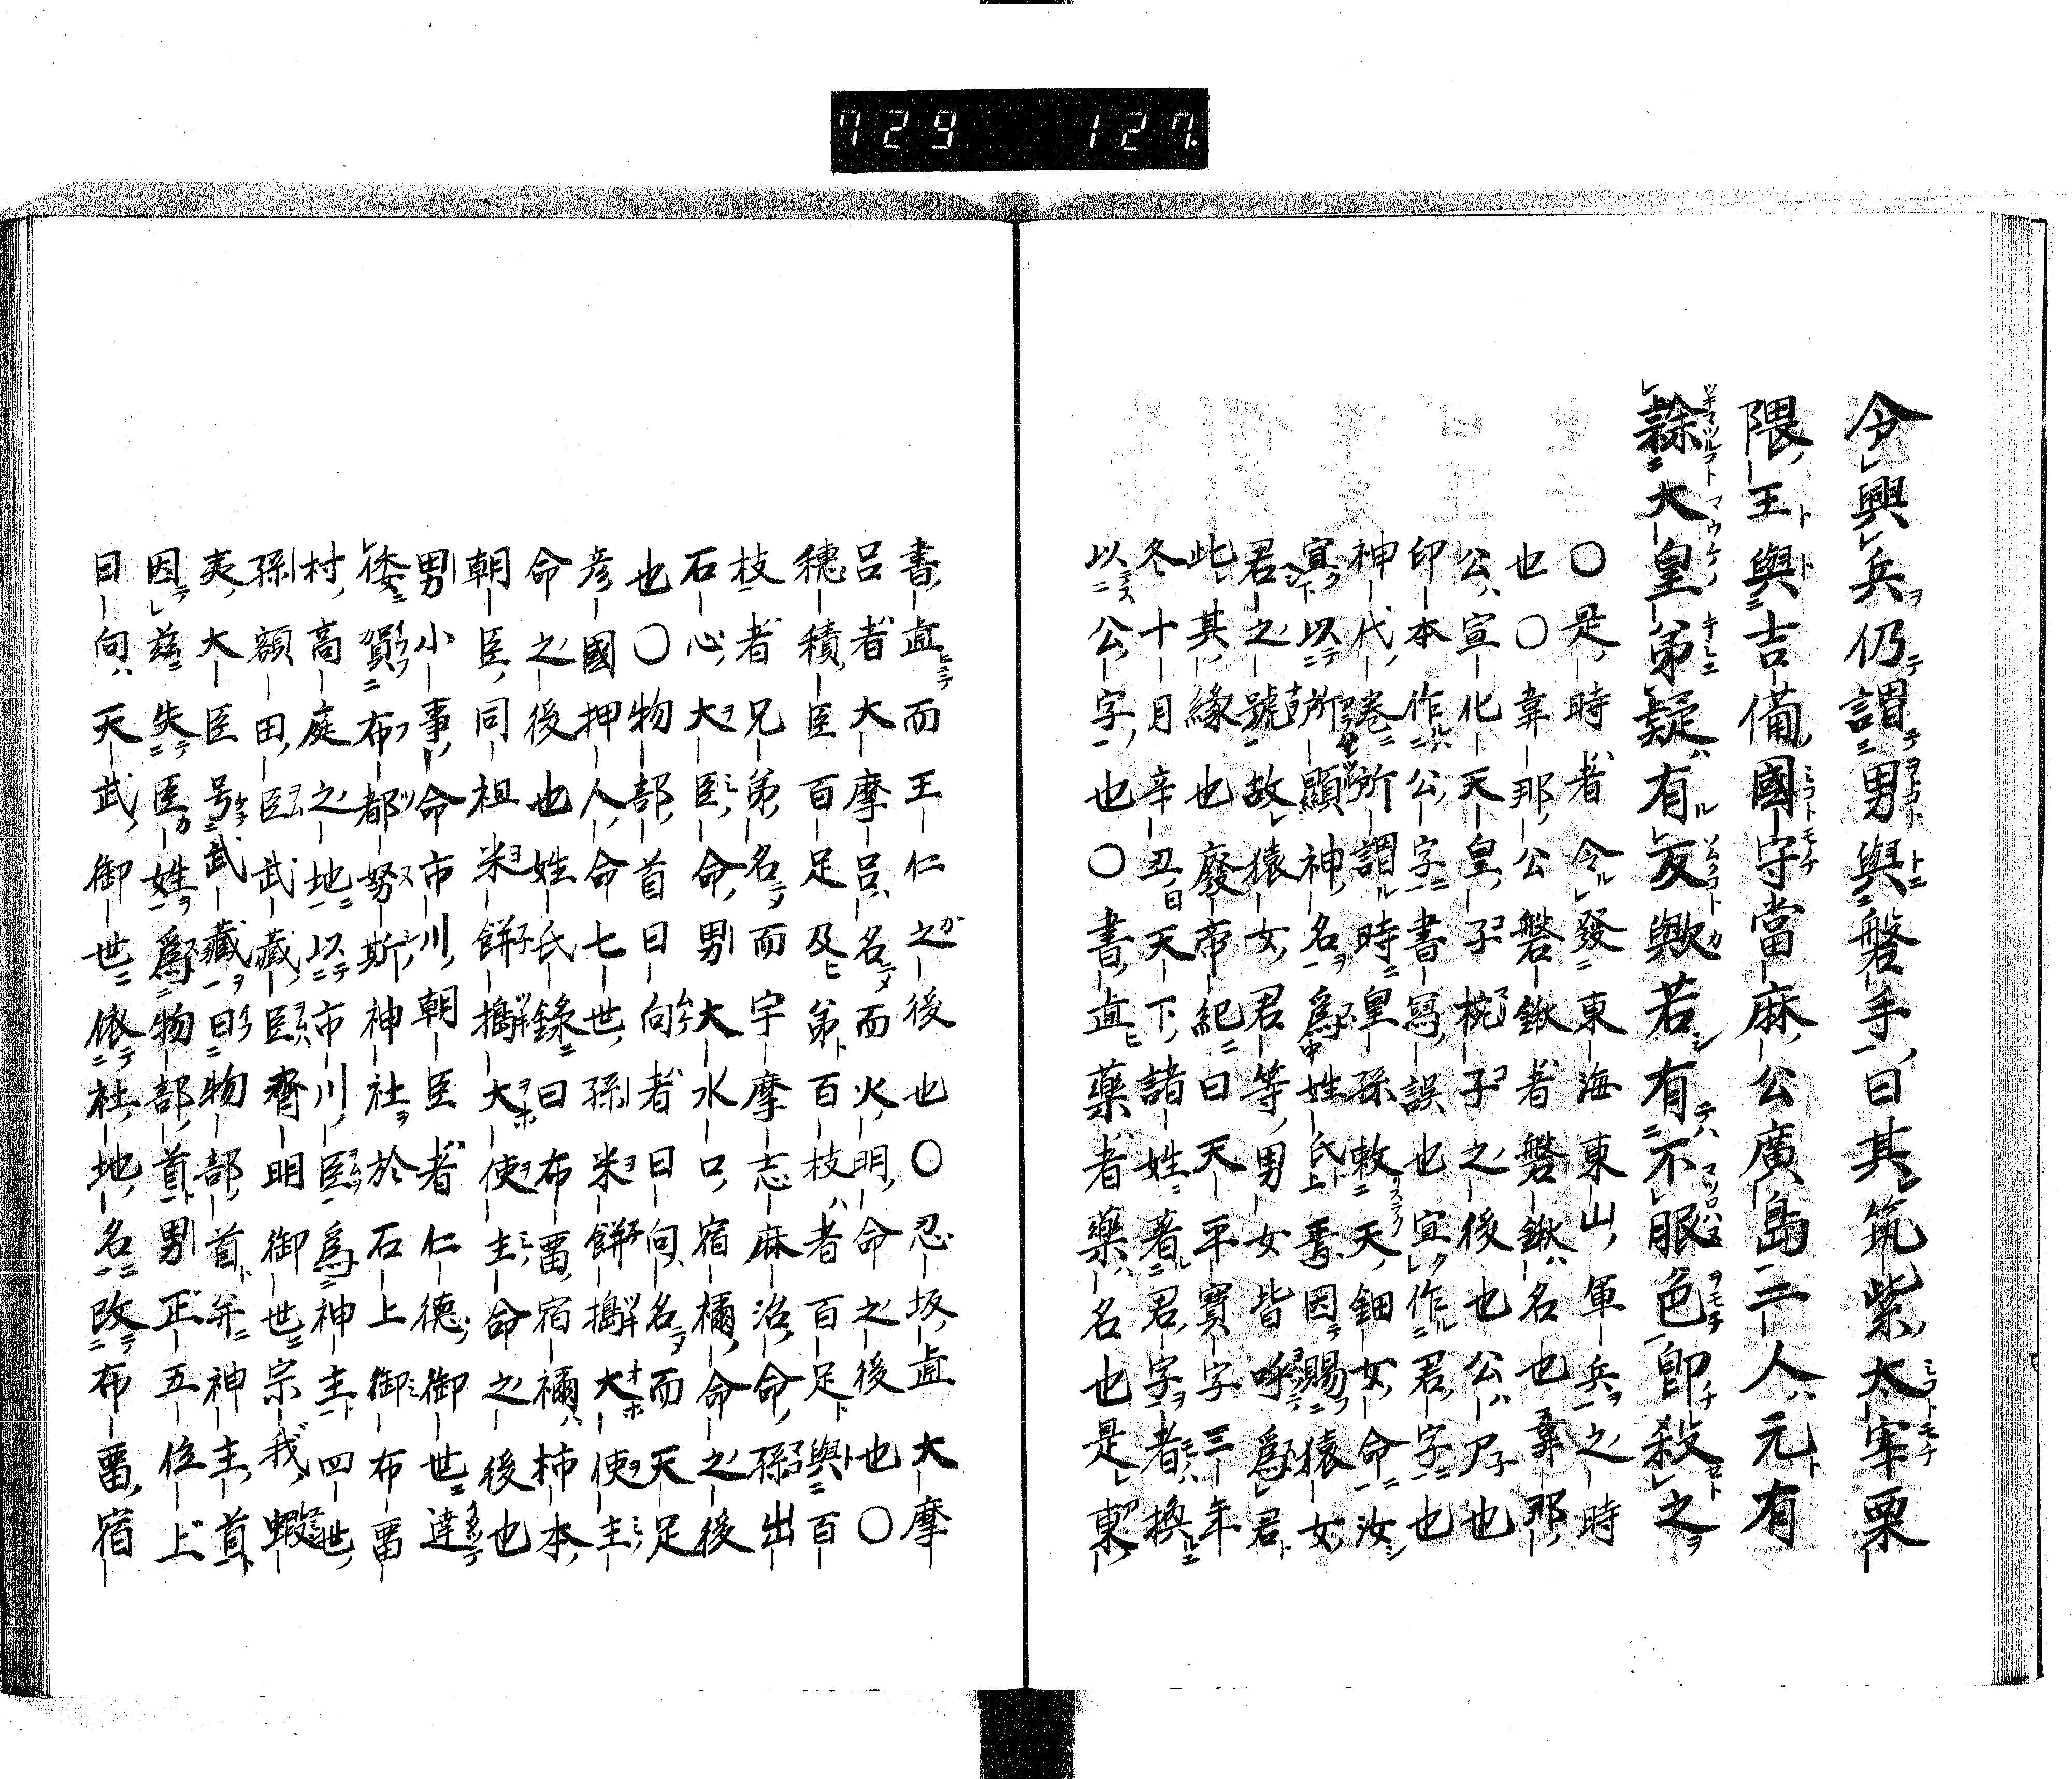 729 127
今興兵仍謂男與磐手曰其筑紫太宰栗
隈王與吉備國守當麻公廣島二人元有
隷大皇弟疑有反歟若有不服色即殺之
〇是時者令發東海東山軍兵之時
也〇韋那公磐鍬者磐鍬名也韋那
公宣化天皇子椀子之後也公乃也
印本作公字書寫誤也宜作君字也
神代卷所謂時皇孫敕天鈿女命汝
宜以所顯神名爲姓氏焉因賜猿女
君之號故猿女君等男女皆呼爲君
此其緣也廢帝紀曰天平寶字三年
冬十月辛丑日天下諸姓著君字者換
以公字也〇書直藥者藥名也是東
書直而王仁之後也〇忍坂直大摩
呂者大摩呂名而火明命之後也〇
穗積臣百足及弟百枝者百足與百
枝者兄弟名而宇摩志麻治命孫出
石心大臣命男大水口宿禰命之後
也〇物部首日向者日向名而天足
彦國押人命七世孫米餅搗大使主
命之後也姓氏錄曰布畱宿禰柿本
朝臣同祖米餅搗大使主命之後也
男小事命市川朝臣者仁德御世達
倭賀布都努斯神社於石上御布畱
村高庭之地以市川臣爲神主四世
孫額田臣武藏臣齊明御世宗我蝦
夷大臣号武藏曰物部首并神主首
因茲失臣姓爲物部首男正五位上
日向天武御世依社地名改布畱宿